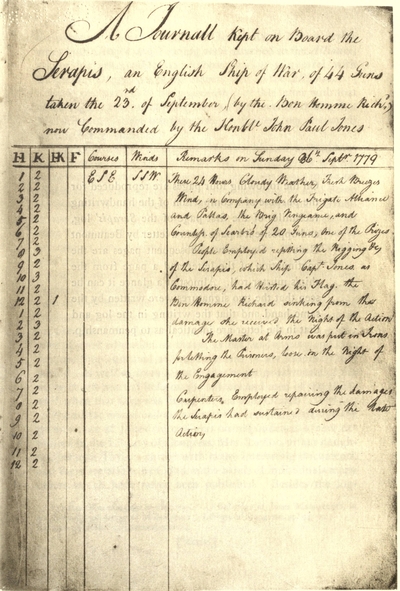 A Journall Kept on Board the
Serapis, an English Ship of War, of 44 Guns
taken the 23rd of September (by the Bon Homme Richd)
now Commanded by the Honble John Paul Jones
H K HK F Courses Winds Remarks on Sunday 26th Septr 1779
1 2 ESE SSW These 24 Hours, Cloudy Weather, Fresh Breezes
2 2 Wind, in Company with the Frigate Alliance
3 2 and Pallas, the Brig Vengeance, and
4 2 Countess of Scarbro' of 20 Guns, one of the Prizes
5 2
6 2 People Employed repairing the Rigging &c
7 2 of the Serapis, which Ship Capt Jones as
8 3 Commodore, had Histed his Flag. the
9 2
10 3
11 2
12 2 1 Bon Homme Richard sinking from the
1 2 damage she received the Night of the Action
2 3
3 2 The Master at Arms was put in Irons
4 2 for letting the Prisoners, loose on the Night of
5 2
6 2 the Engagement
7 2 Carpenters Employed repairing the damages
8 2 the Serapis had sustained during the
9 2
10 2 Action
11 2
12 2